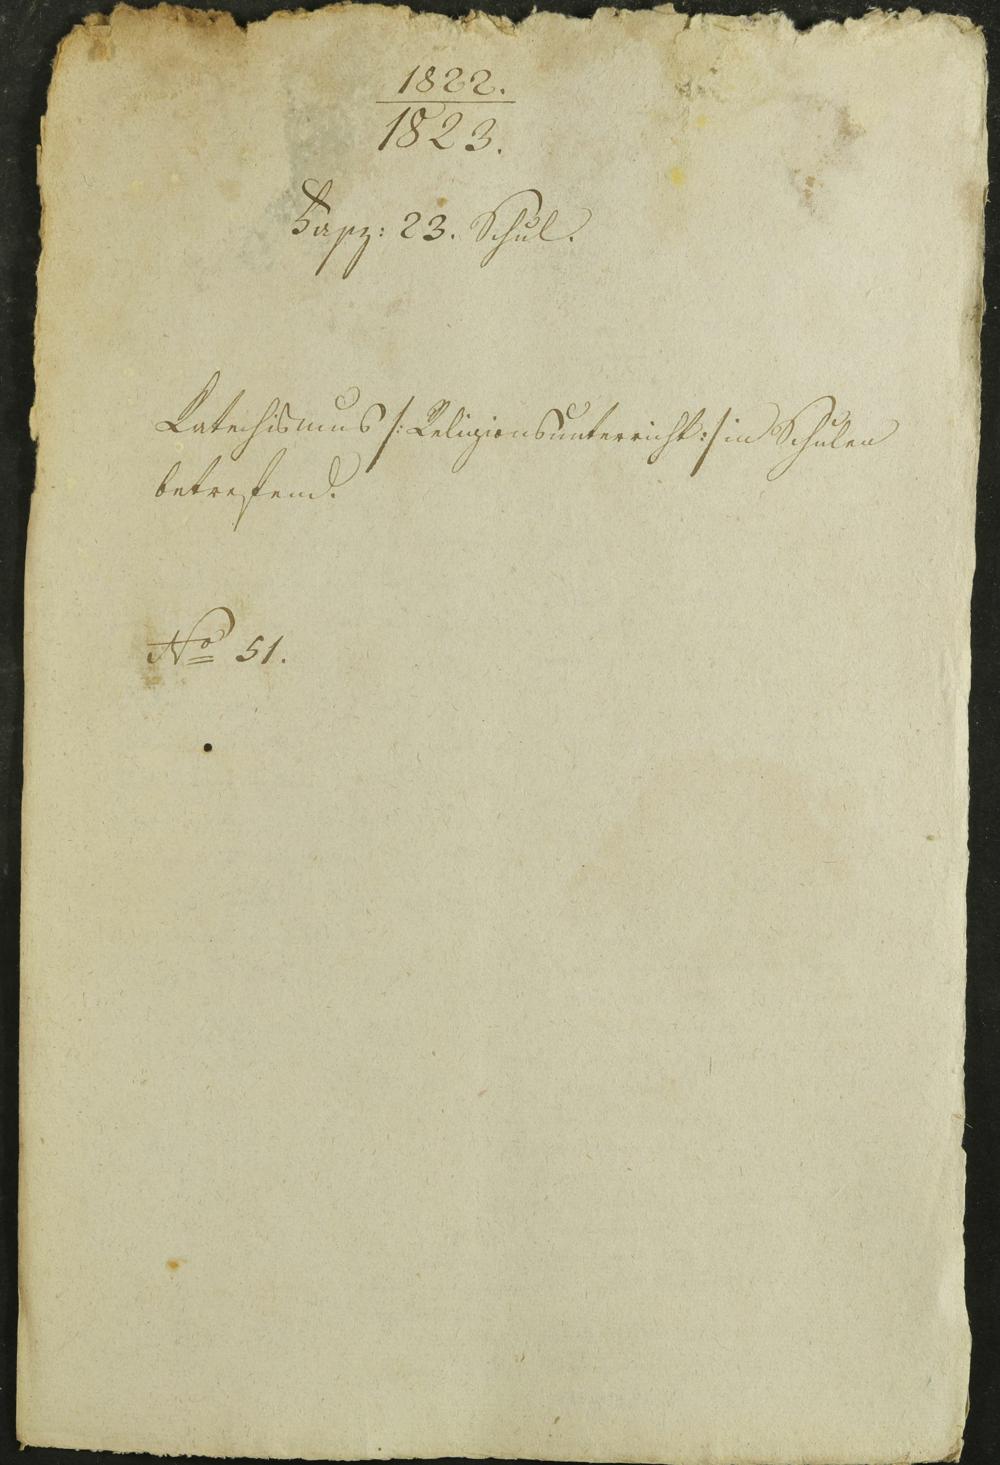 1822.
1823.
Fasz: 23. Schul.
Katechismus /: Religionsunterricht :/ in Schulen
betreffend.
No 51.